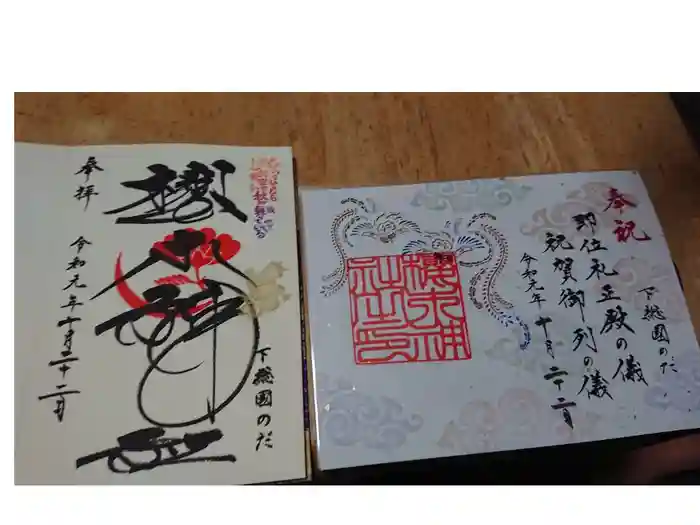 奉拝
櫻木神社
令和元年十月二十二日
下総国のだ
奉祝
即位礼正殿の儀
祝賀御列の儀
令和元年十月二十二日
下総国のだ
櫻木神社之印